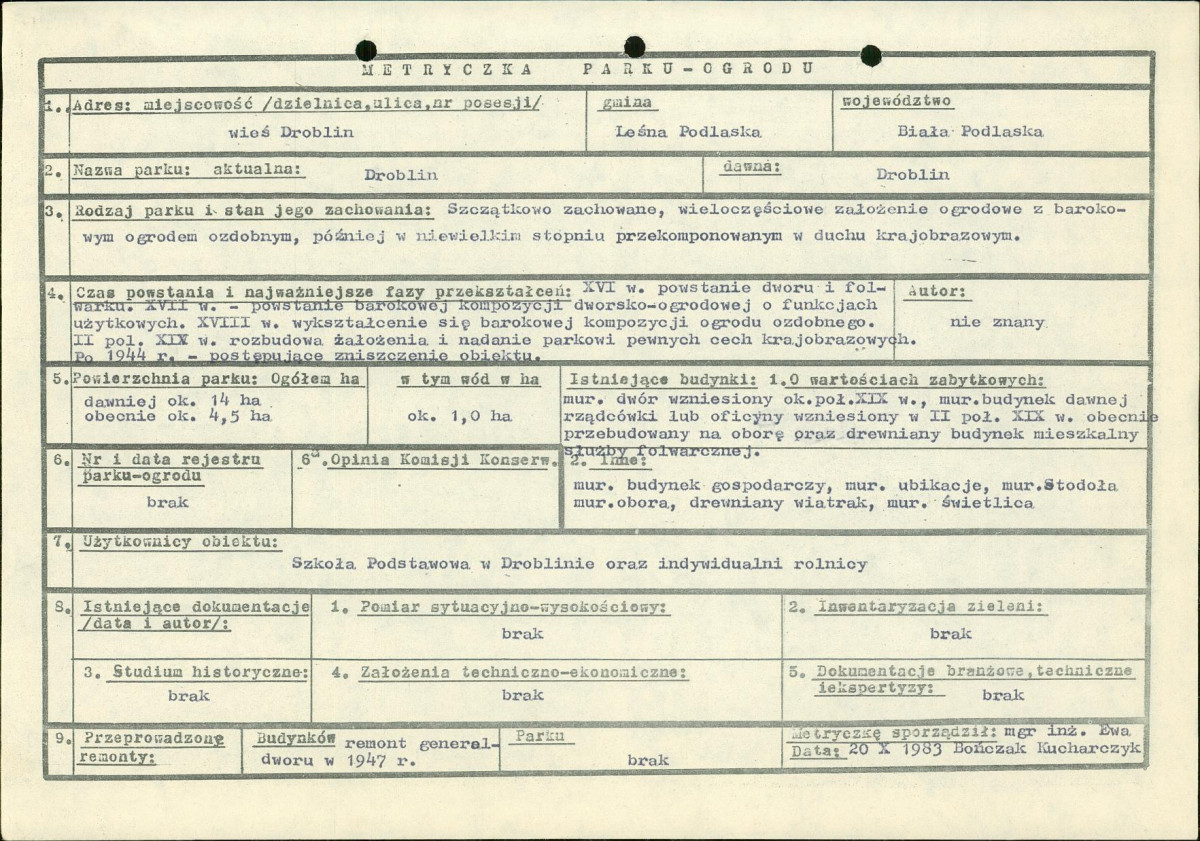 METRYCZKA PARKU-OGRODU
1. Adres: miejscowość /dzielnica,ulica,nr posesji/
wieś Droblin
gmina
Leśna Podlaska
województwo
Biała Podlaska
2. Nazwa parku: aktualna: Droblin
dawna: Droblin
3. Rodzaj parku i stan jego zachowania: Szczątkowo zachowane, wieloczęściowe założenie ogrodowe z baroko-
wym ogrodem ozdobnym, później w niewielkim stopniu przekomponowanym w duchu krajobrazowym.
4. Czas powstania i najważniejsze fazy przekształceń: XVI w. powstanie dworu i fol-
warku. XVII w. - powstanie barokowej kompozycji dworsko-ogrodowej o funkcjach
użytkowych. XVIII w. wykształcenie się barokowej kompozycji ogrodu ozdobnego.
II poł. XIX w. rozbudowa założenia i nadanie parkowi pewnych cech krajobrazowych.
Po 1944 r. - postępujące zniszczenie obiektu.
Autor:
nie znany
5. Powierzchnia parku: Ogółem ha
dawniej ok. 14 ha
obecnie ok. 4,5 ha
w tym wód w ha
ok. 1,0 ha
Istniejące budynki: 1.O wartościach zabytkowych:
mur. dwór wzniesiony ok.poł.XIX w., mur.budynek dawnej
rządcówki lub oficyny wzniesiony w II poł. XIX w. obecnie
przebudowany na oborę oraz drewniany budynek mieszkalny
służby folwarcznej.
6. Nr i data rejestru
parku-ogrodu
brak
6a. Opinia Komisji Konserw.
2. Inne:
mur. budynek gospodarczy, mur. ubikacje, mur.Stodoła
mur.obora, drewniany wiatrak, mur. świetlica
7. Użytkownicy obiektu:
Szkoła Podstawowa w Droblinie oraz indywidualni rolnicy
8. Istniejące dokumentacje
/data i autor/:
1. Pomiar sytuacyjno-wysokościowy:
brak
2. Inwentaryzacja zieleni:
brak
3. Studium historyczne:
brak
4. Założenia techniczno-ekonomiczne:
brak
5. Dokumentacje branżowe,techniczne
iekspertyzy: brak
9. Przeprowadzone
remonty:
Budynków remont general-
dworu w 1947 r.
Parku
brak
Metryczkę sporządził: mgr inż. Ewa
Data: 20 X 1983 Bończak Kucharczyk